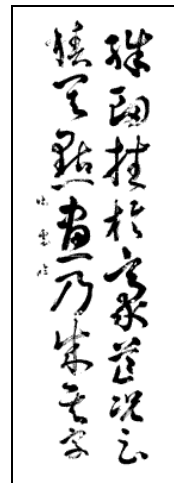 殊衄挫於豪芒况云
積其點畫乃成其字